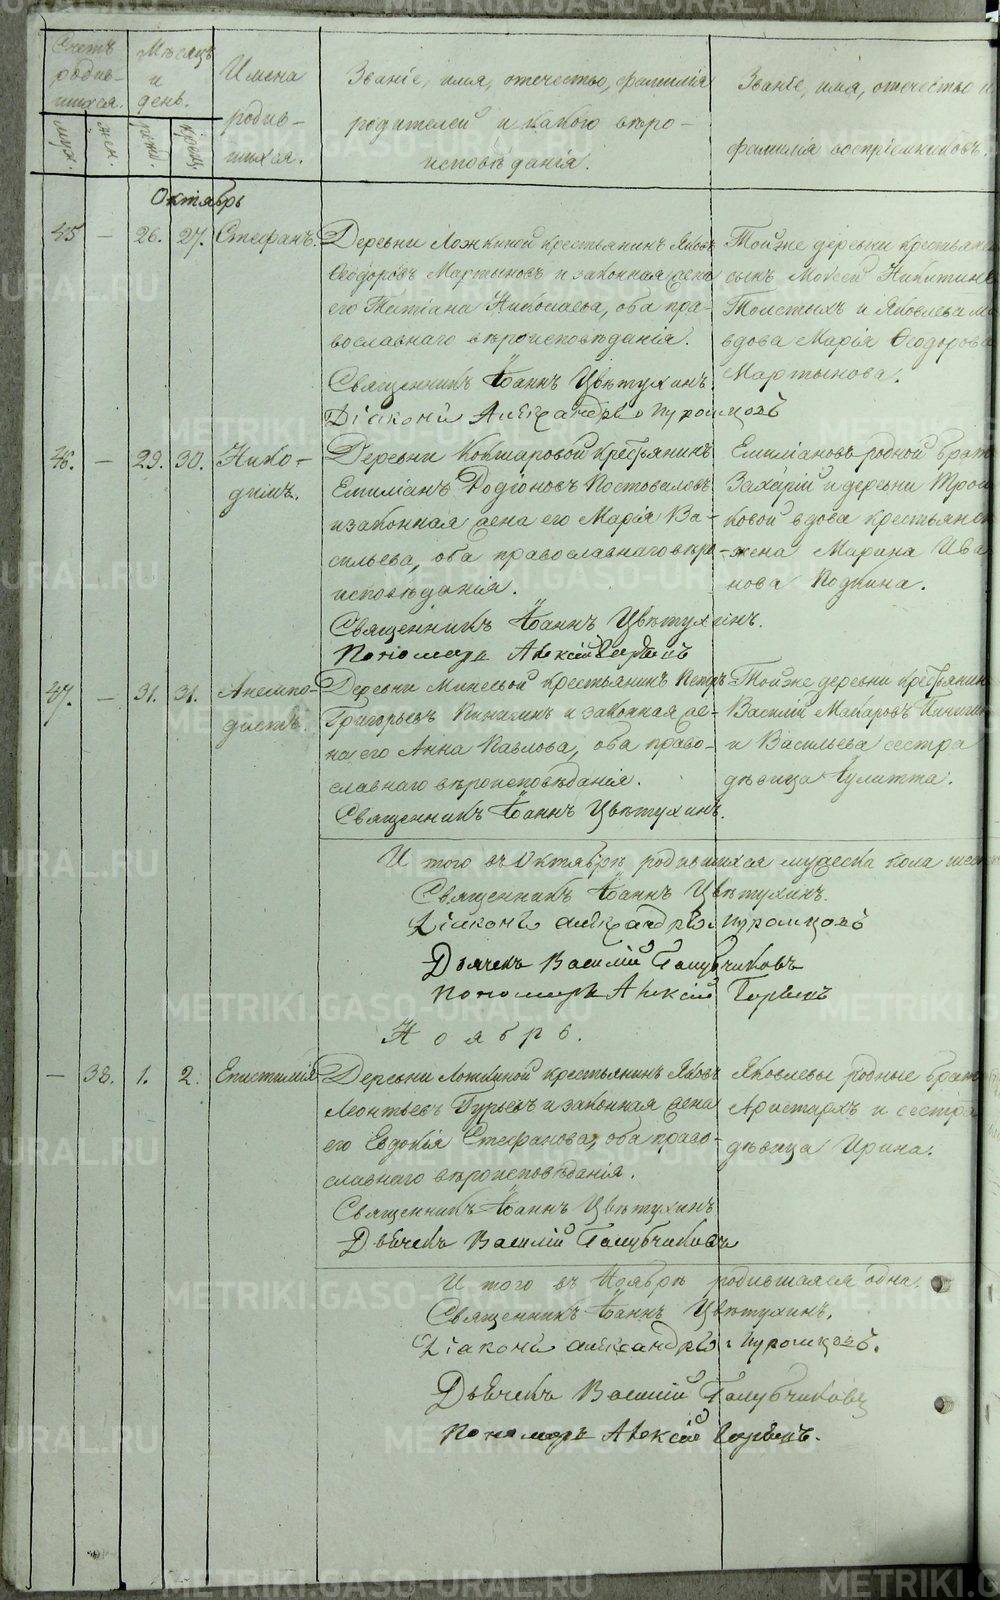 Счетъ родив-шихся.
Мѣсяцъ и день.
Имена родив-шихся.
Званіе, имя, отечество, фамилія
родителей и какого вѣро-
исповѣданія.
Званіе, имя, отечество и
фамилія воспріемниковъ.
муж. жен. рожд. крещ.
Октябрь
45 — 26. 27. Стефанъ.
Деревни Ложкиной крестьянинъ Яковъ
Ѳеодоровъ Мартыновъ и законная жена
его Татіана Николаева, оба пра-
вославнаго вѣроисповѣданія.
Священникъ Іоаннъ Цвѣтухинъ.
Діаконъ Александръ
Тойже деревни крестьянс
сынъ Моѵсей Никитинъ
Толстыхъ и Яковлева
вдова Марія Ѳеодорова
Мартынова.
46. — 29. 30. Нико-
димъ.
Деревни Кокшаровой крестьянинъ
Емиліанъ Родіоновъ Постоваловъ
и законная жена его Марія Ва-
сильева, оба православнаго вѣро-
исповѣданія.
Священникъ Іоаннъ Цвѣтухинъ.
Пономарь Алексій
Емиліановъ родной братъ
Захарій и деревни
ковой вдова крестьянск
жена Марина Ива-
нова
47. — 31. 31. Анемпо-
дистъ.
Деревни Минеевой крестьянинъ Петръ
Григорьевъ Пинигинъ и законная же-
на его Анна Павлова, оба право-
славнаго вѣроисповѣданія.
Священникъ Іоаннъ Цвѣтухинъ.
Тойже деревни крестьянинъ
Василій Макаровъ Пинигинъ
и Васильева сестра
дѣвица Іулитта.
И того въ Октябрѣ родившихся мужеска пола шест
Священникъ Іоаннъ Цвѣтухинъ.
Діаконъ Александръ
Дьячекъ Василій Голубчиковъ
Пономарь Алексій
Ноябрь.
— 38. 1. 2. Епистимія
Деревни Ложкиной крестьянинъ Яковъ
Леонтьевъ Гурьевъ и законная жена
его Евдокія Стефанова, оба право-
славнаго вѣроисповѣданія.
Священникъ Іоаннъ Цвѣтухинъ
Дьячекъ Василій Голубчиковъ
Яковлевы родные братъ
Аристархъ и сестра
дѣвица Ирина.
И того въ Ноябрѣ родившаяся одна.
Священникъ Іоаннъ Цвѣтухинъ.
Діаконъ Александръ
Дьячекъ Василій Голубчиковъ
Пономарь Алексій
METRIKI.GASO-URAL.RU